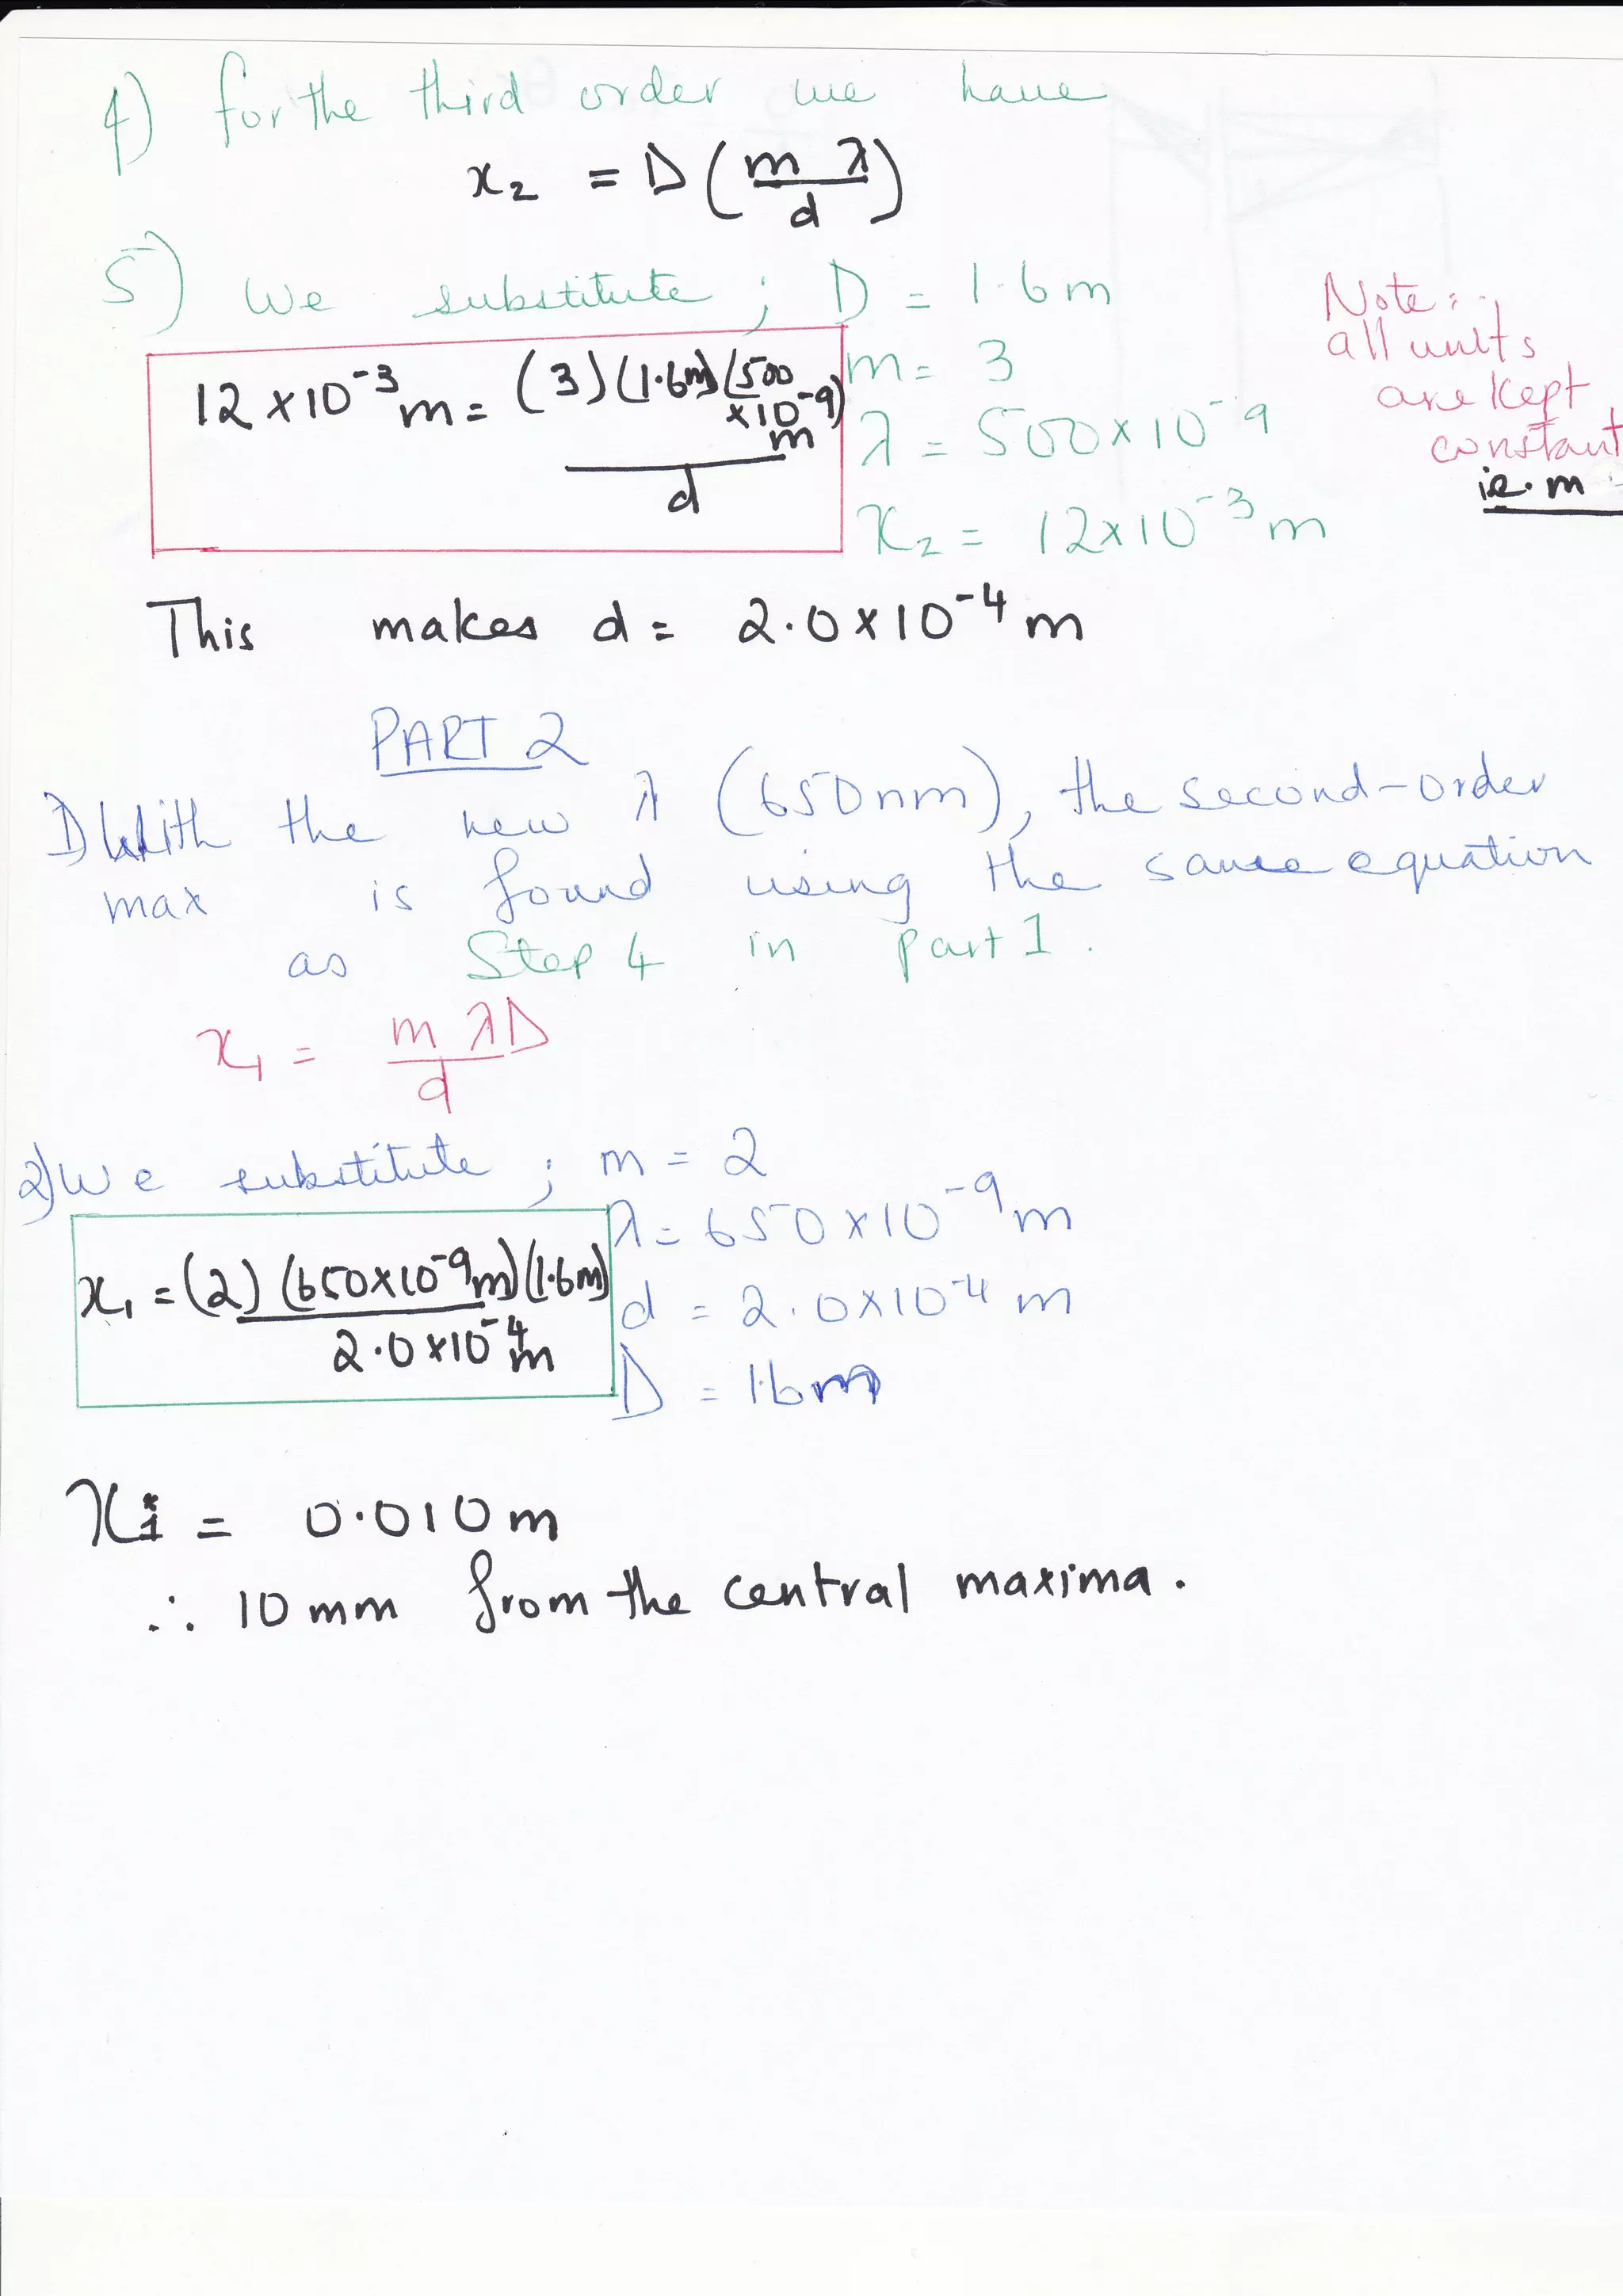 4) for the third order we have
x₂ = D (m λ / d)
5) We substitute ; D = 1.6 m
m = 3
λ = 500 × 10⁻⁹
x₂ = 12 × 10⁻³ m
12 × 10⁻³ m = (3) (1.6 m) (500 × 10⁻⁹ m) / d
Note:
all units
are kept
constant
ie. m
This makes d = 2.0 × 10⁻⁴ m
PART 2
1) With the new λ (650 nm), the second-order
max is found using the same equation
as Step 4 in part 1.
x₁ = m λ D / d
2) We substitute ; m = 2
λ = 650 × 10⁻⁹ m
d = 2.0 × 10⁻⁴ m
D = 1.6 m
x₁ = (2) (650 × 10⁻⁹ m) (1.6 m) / 2.0 × 10⁻⁴ m
x₁ = 0.010 m
∴ 10 mm from the central maxima.